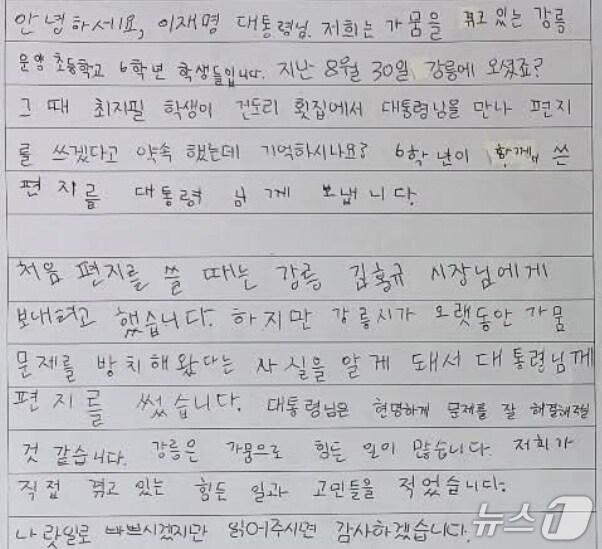 안녕하세요, 이재명 대통령님. 저희는 가뭄을 겪고 있는 강릉
운양 초등학교 6학년 학생들입니다. 지난 8월 30일 강릉에 오셨죠?
그 때 최지필 학생이 건도리 횟집에서 대통령님을 만나 편지
를 쓰겠다고 약속 했는데 기억하시나요? 6학년이 함께 쓴
편지를 대통령 님께 보냅니다.
처음 편지를 쓸 때는 강릉 김홍규 시장님에게
보내려고 했습니다. 하지만 강릉시가 오랫동안 가뭄
문제를 방치해왔다는 사실을 알게 돼서 대통령님께
편지를 썼습니다. 대통령님은 현명하게 문제를 잘 해결해주실
것 같습니다. 강릉은 가뭄으로 힘든 일이 많습니다. 저희가
직접 겪고 있는 힘든 일과 고민들을 적었습니다.
나랏일로 바쁘시겠지만 읽어주시면 감사하겠습니다.
뉴스1